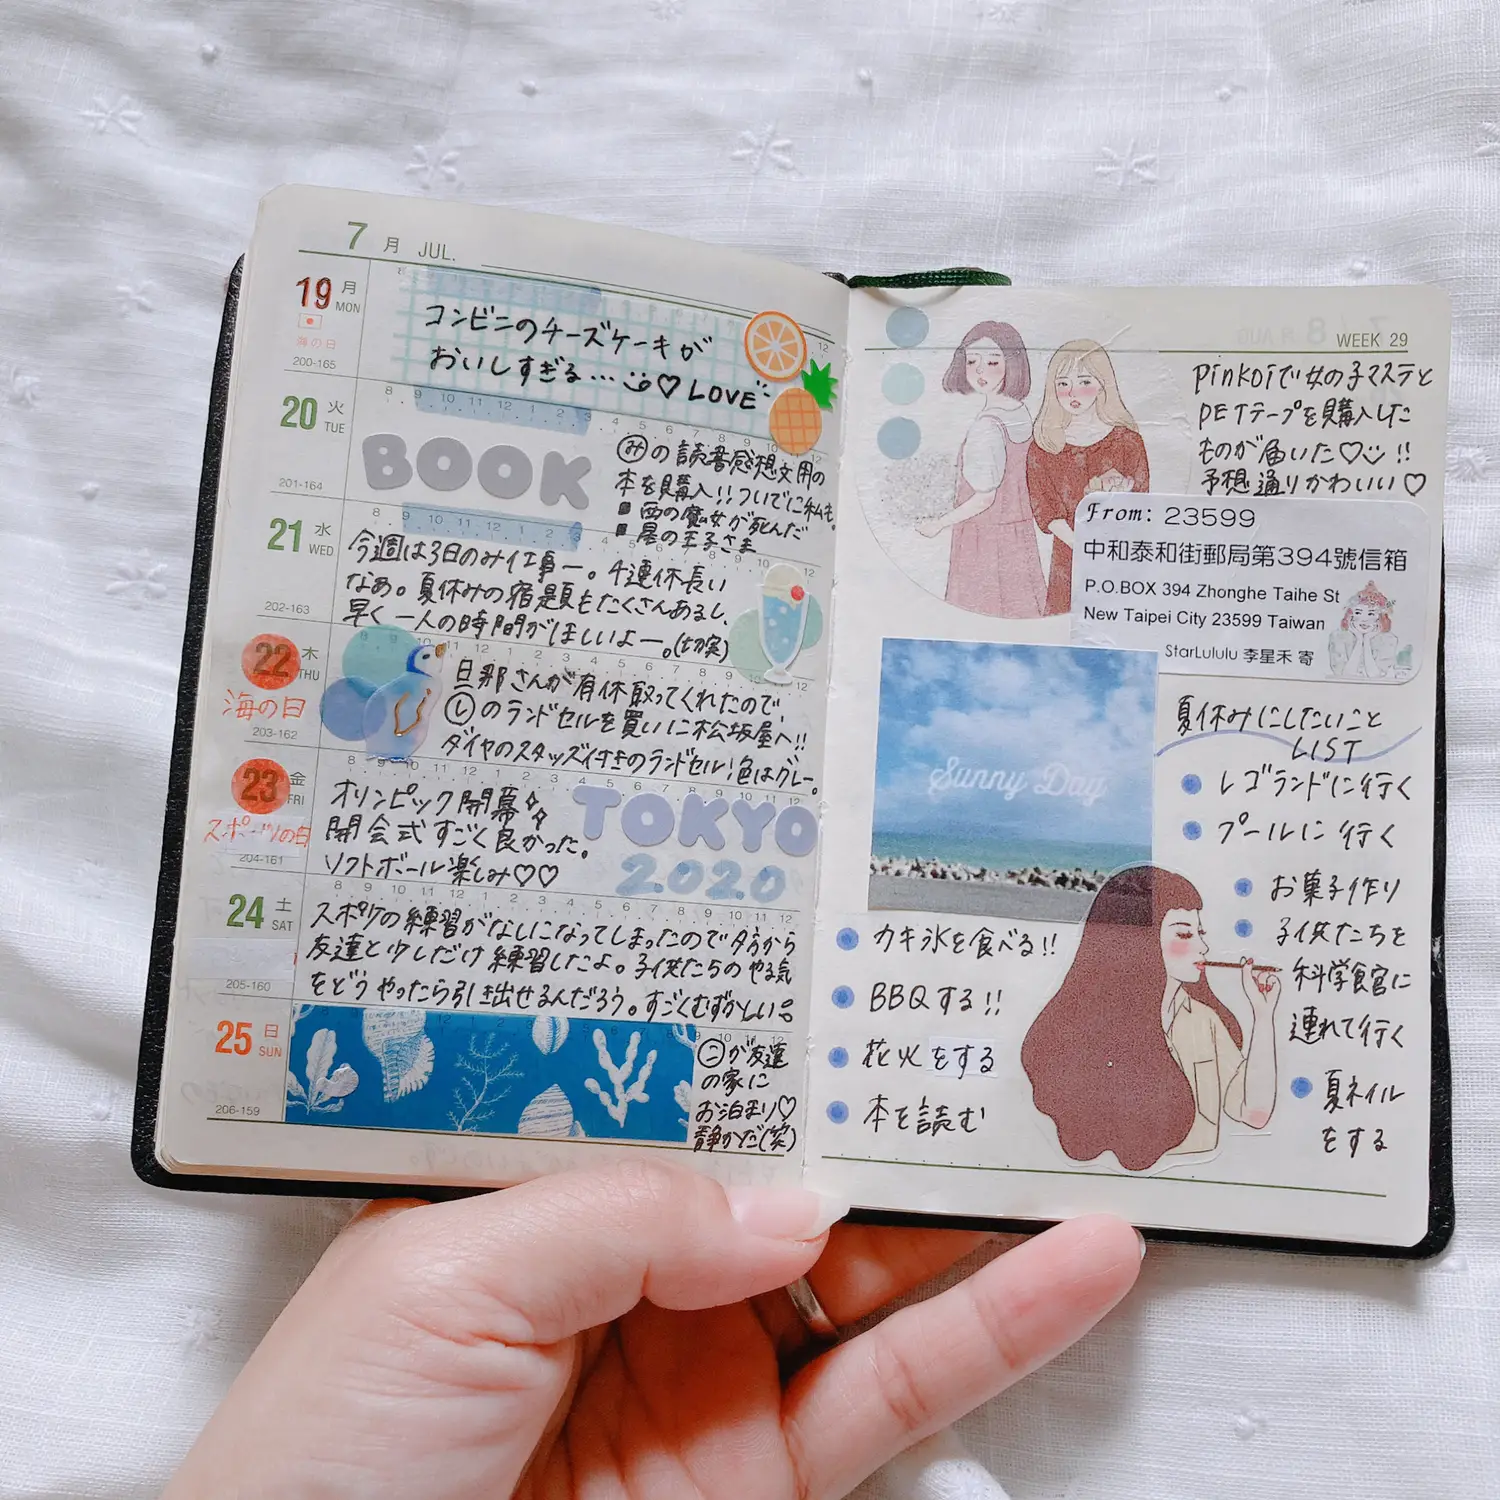 7 月 JUL.
19 月
MON
海の日
200-165
コンビニのチーズケーキが
おいしすぎる… ♡ LOVE
20 火
TUE
201-164
BOOK
みの読書感想文用の
本を購入!!ついでに私も。
■ 西の魔女が死んだ
■ 星の王子さま
21 水
WED
202-163
今週は3日のみ仕事ー。4連休長い
なぁ。夏休みの宿題もたくさんあるし、
早く一人の時間がほしいよー。(切実)
22 木
THU
海の日
203-162
旦那さんが有休取ってくれたので
しのランドセルを買いに松坂屋へ!!
ダイヤのスタッズ付きのランドセル!色はグレー。
23 金
FRI
スポーツの日
204-161
オリンピック開幕
開会式すごく良かった。
ソフトボール楽しみ♡♡
TOKYO
2020
24 土
SAT
205-160
スポ少の練習がないになってしまったので夕方から
友達と少しだけ練習したよ。子供たちのやる気
をどうやったら引き出せるんだろう。すごくむずかしい。
25 日
SUN
206-159
こが友達
の家に
お泊まり♡
静かだ(笑)
WEEK 29
pinkoiで女の子マステと
PETテープを購入した
ものが届いた♡!!
予想通りかわいい♡
From: 23599
中和泰和街郵局第394號信箱
P.O.BOX 394 Zhonghe Taihe St
New Taipei City 23599 Taiwan
StarLululu 李星禾 寄
Sunny Day
夏休みにしたいこと
LIST
● レゴランドに行く
● プールに行く
● お菓子作り
● 子供たちを
科学食官に
連れて行く
● 夏ネイル
をする
● カキ氷を食べる!!
● BBQする!!
● 花火をする
● 本を読む